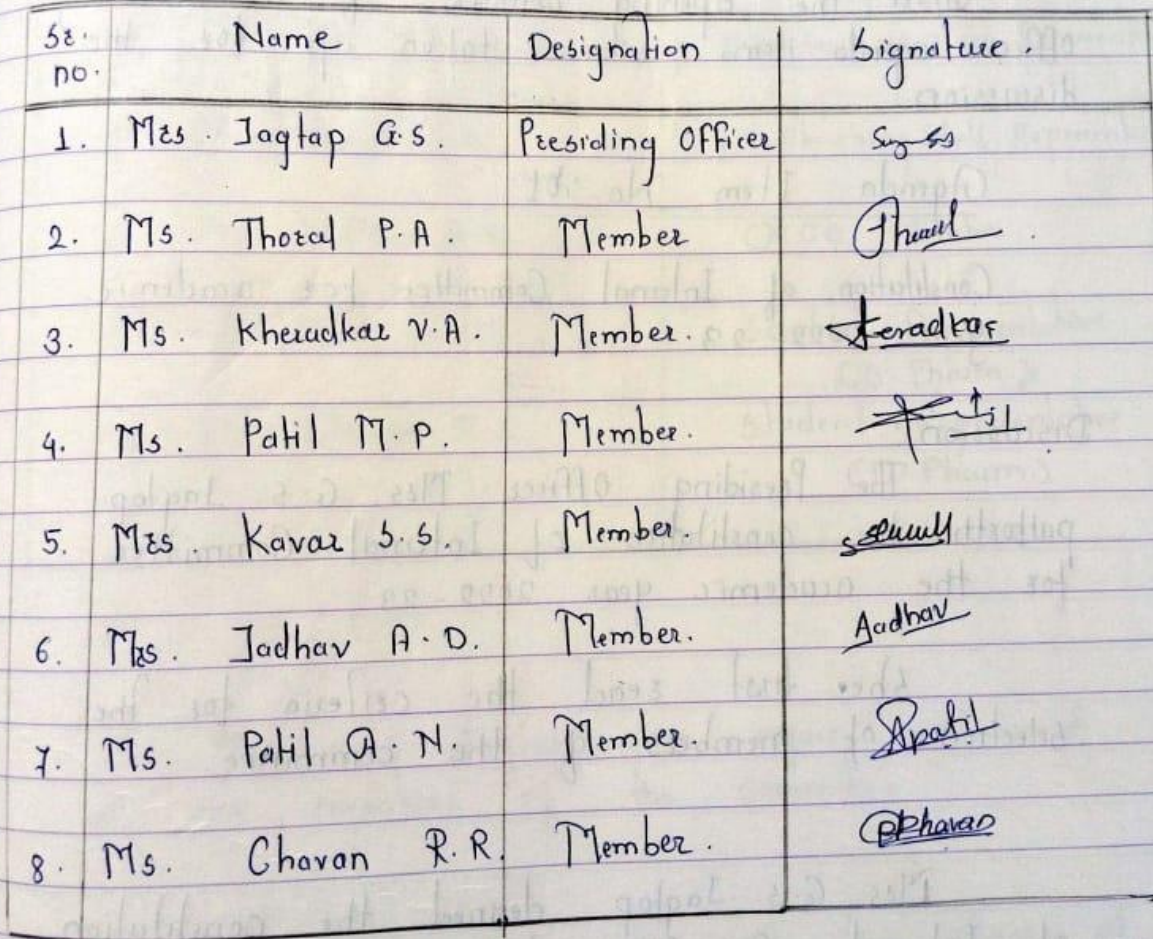 Sr. Name Designation Signature.
no.
1. Mrs. Jagtap G.S. Presiding Officer
2. Ms. Thoral P.A. Member
3. Ms. Kheradkar V.A. Member. Keradkar
4. Ms. Patil M.P. Member.
5. Mrs. Kavar S.S. Member.
6. Mrs. Jadhav A.D. Member. Aadhav
7. Ms. Patil A.N. Member. Apatil
8. Ms. Chavan R.R. Member.